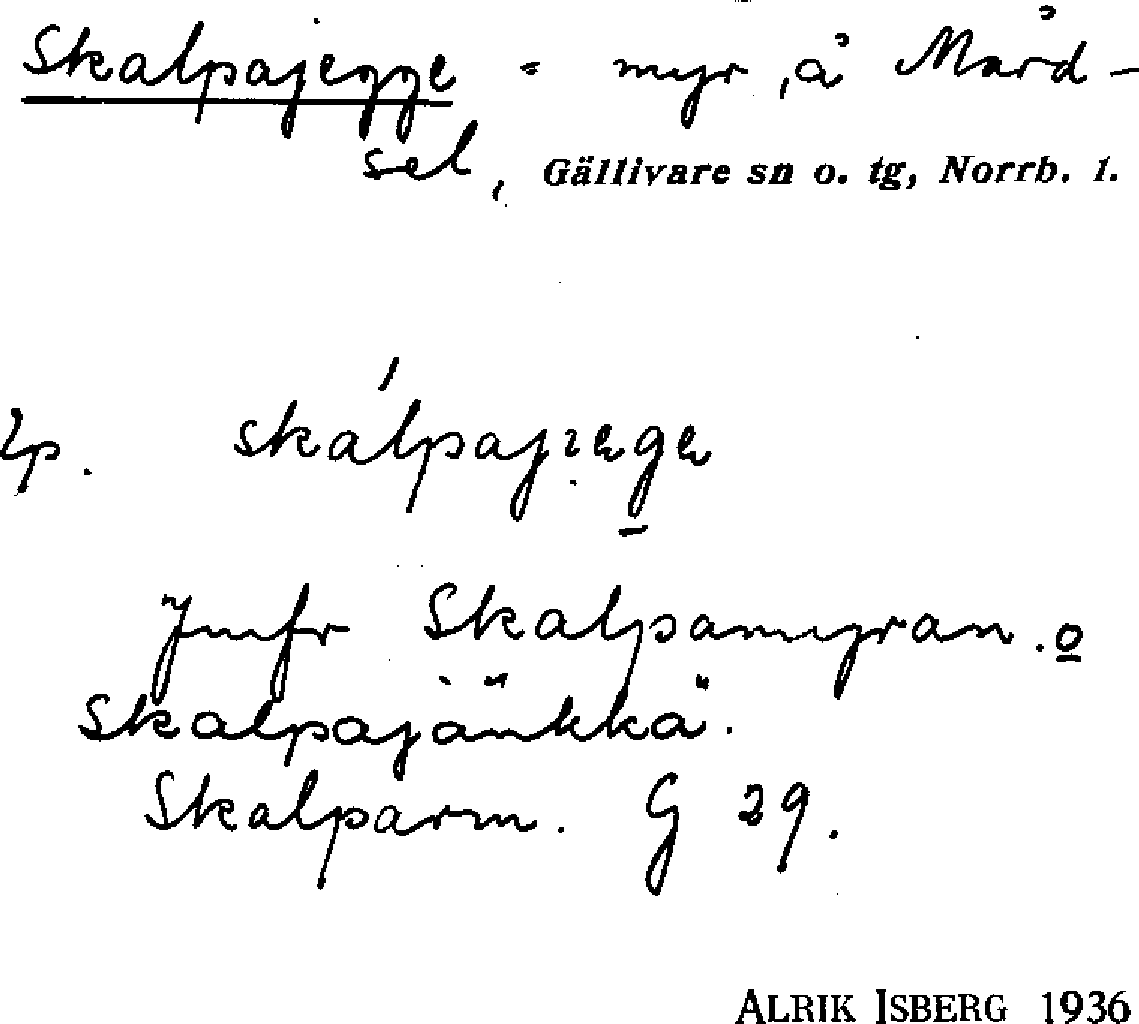 Skalpajegge = myr, å Mård-
sel, Gällivare sn o. tg, Norrb. l.
lp. skálpajiegæ
Jmfr Skalpamyran. o
Skalpajänkkä.
Skalparm. G 29.
ALRIK ISBERG 1936